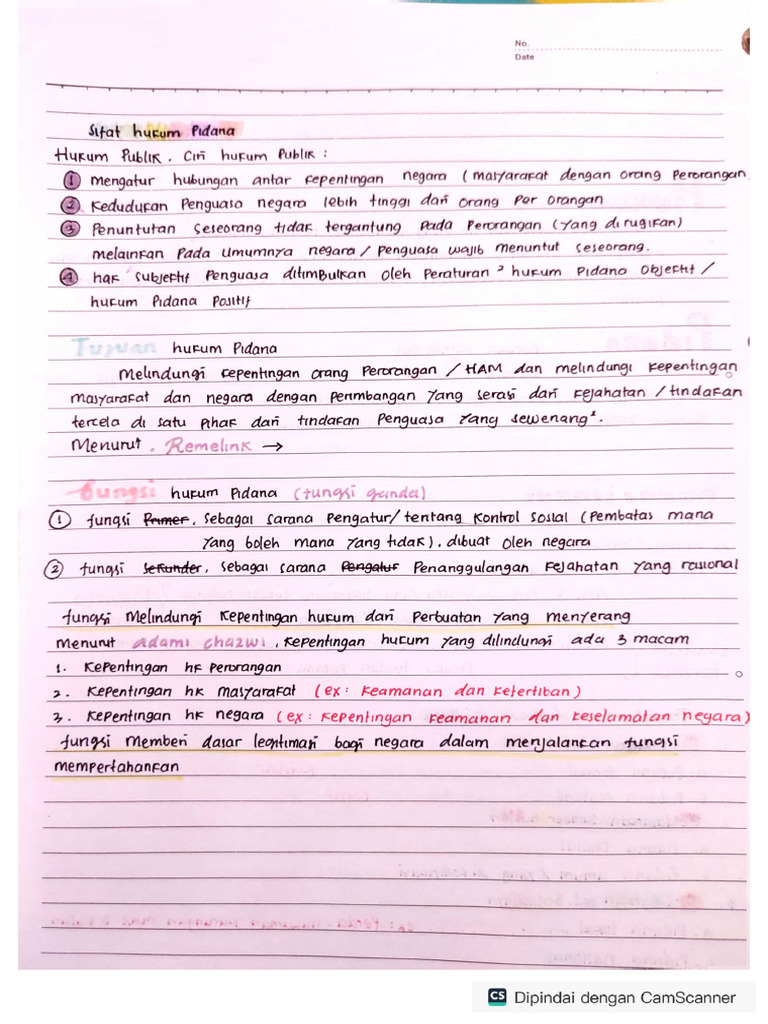 No.
Date
Sifat hukum Pidana
Hukum Publik. Ciri hukum Publik :
1 mengatur hubungan antar kepentingan negara (masyarakat dengan orang perorangan
2 Kedudukan Penguasa negara lebih tinggi dari orang per orangan
3 Penuntutan seseorang tidak tergantung pada perorangan (yang di rugikan)
melainkan pada umumnya negara / penguasa wajib menuntut seseorang.
4 hak subjektif penguasa ditimbulkan oleh peraturan² hukum pidana objektif /
hukum Pidana Positif
Tujuan hukum Pidana
Melindungi kepentingan orang perorangan / HAM dan melindungi kepentingan
masyarakat dan negara dengan perimbangan yang serasi dari kejahatan / tindakan
tercela di satu pihak dari tindakan penguasa yang sewenang².
Menurut . Remelink →
Fungsi hukum Pidana (fungsi ganda)
1 fungsi Primer, sebagai sarana pengatur/ tentang kontrol sosial (pembatas mana
yang boleh mana yang tidak). dibuat oleh negara
2 fungsi sekunder, sebagai sarana Pengatur Penanggulangan kejahatan yang rasional
fungsi Melindungi kepentingan hukum dari perbuatan yang menyerang
menurut adami chazwi, kepentingan hukum yang dilindungi ada 3 macam
1. Kepentingan hk perorangan
2. Kepentingan hk masyarakat (ex: keamanan dan ketertiban)
3. Kepentingan hk negara (ex: kepentingan keamanan dan keselamatan negara)
fungsi memberi dasar legitimasi bagi negara dalam menjalankan fungsi
mempertahankan
CS Dipindai dengan CamScanner